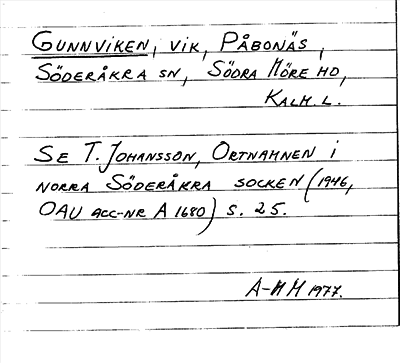 GUNNVIKEN, VIK, PÅBONÄS,
SÖDERÅKRA SN, SÖDRA MÖRE HD,
KALM. L.
SE T. JOHANSSON, ORTNAMNEN I
NORRA SÖDERÅKRA SOCKEN (1946,
OAU ACC-NR A 1680) S. 25.
A-MM 1977.